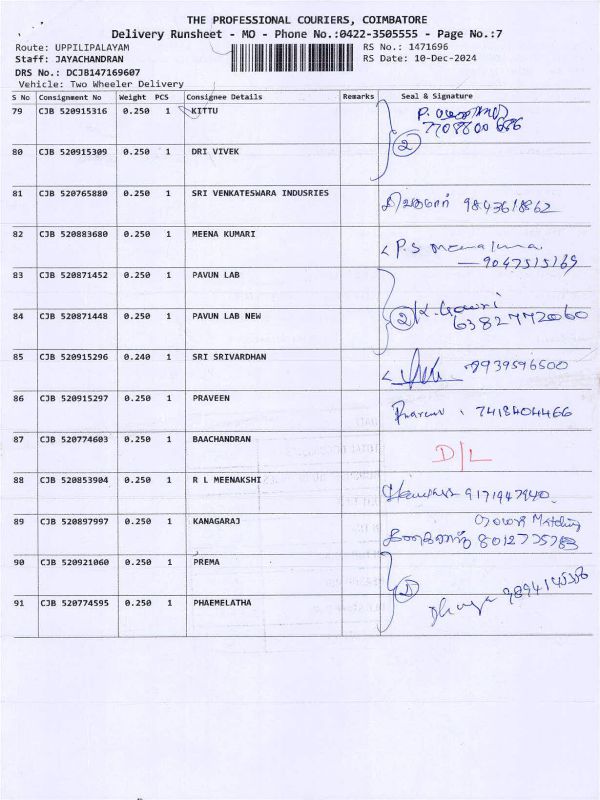 THE PROFESSIONAL COURIERS, COIMBATORE
Delivery Runsheet - MO - Phone No.:0422-3505555 - Page No.:7
Route: UPPILIPALAYAM RS No.: 1471696
Staff: JAYACHANDRAN RS Date: 10-Dec-2024
DRS No.: DCJB147169607
Vehicle: Two Wheeler Delivery
S No Consignment No Weight PCS Consignee Details Remarks Seal & Signature
79 CJB 520915316 0.250 1 KITTU P.
7708600686
2
80 CJB 520915309 0.250 1 DRI VIVEK
81 CJB 520765880 0.250 1 SRI VENKATESWARA INDUSRIES 9843618862
82 CJB 520883680 0.250 1 MEENA KUMARI P.S
9047515169
83 CJB 520871452 0.250 1 PAVUN LAB
84 CJB 520871448 0.250 1 PAVUN LAB NEW 2 K. Gowri
6382772060
85 CJB 520915296 0.240 1 SRI SRIVARDHAN 9939596500
86 CJB 520915297 0.250 1 PRAVEEN Praveen : 7418404466
87 CJB 520774603 0.250 1 BAACHANDRAN D/L
88 CJB 520853904 0.250 1 R L MEENAKSHI 9171947940
89 CJB 520897997 0.250 1 KANAGARAJ Matching
கனகராஜ் 8012775783
90 CJB 520921060 0.250 1 PREMA 2
91 CJB 520774595 0.250 1 PHAEMELATHA